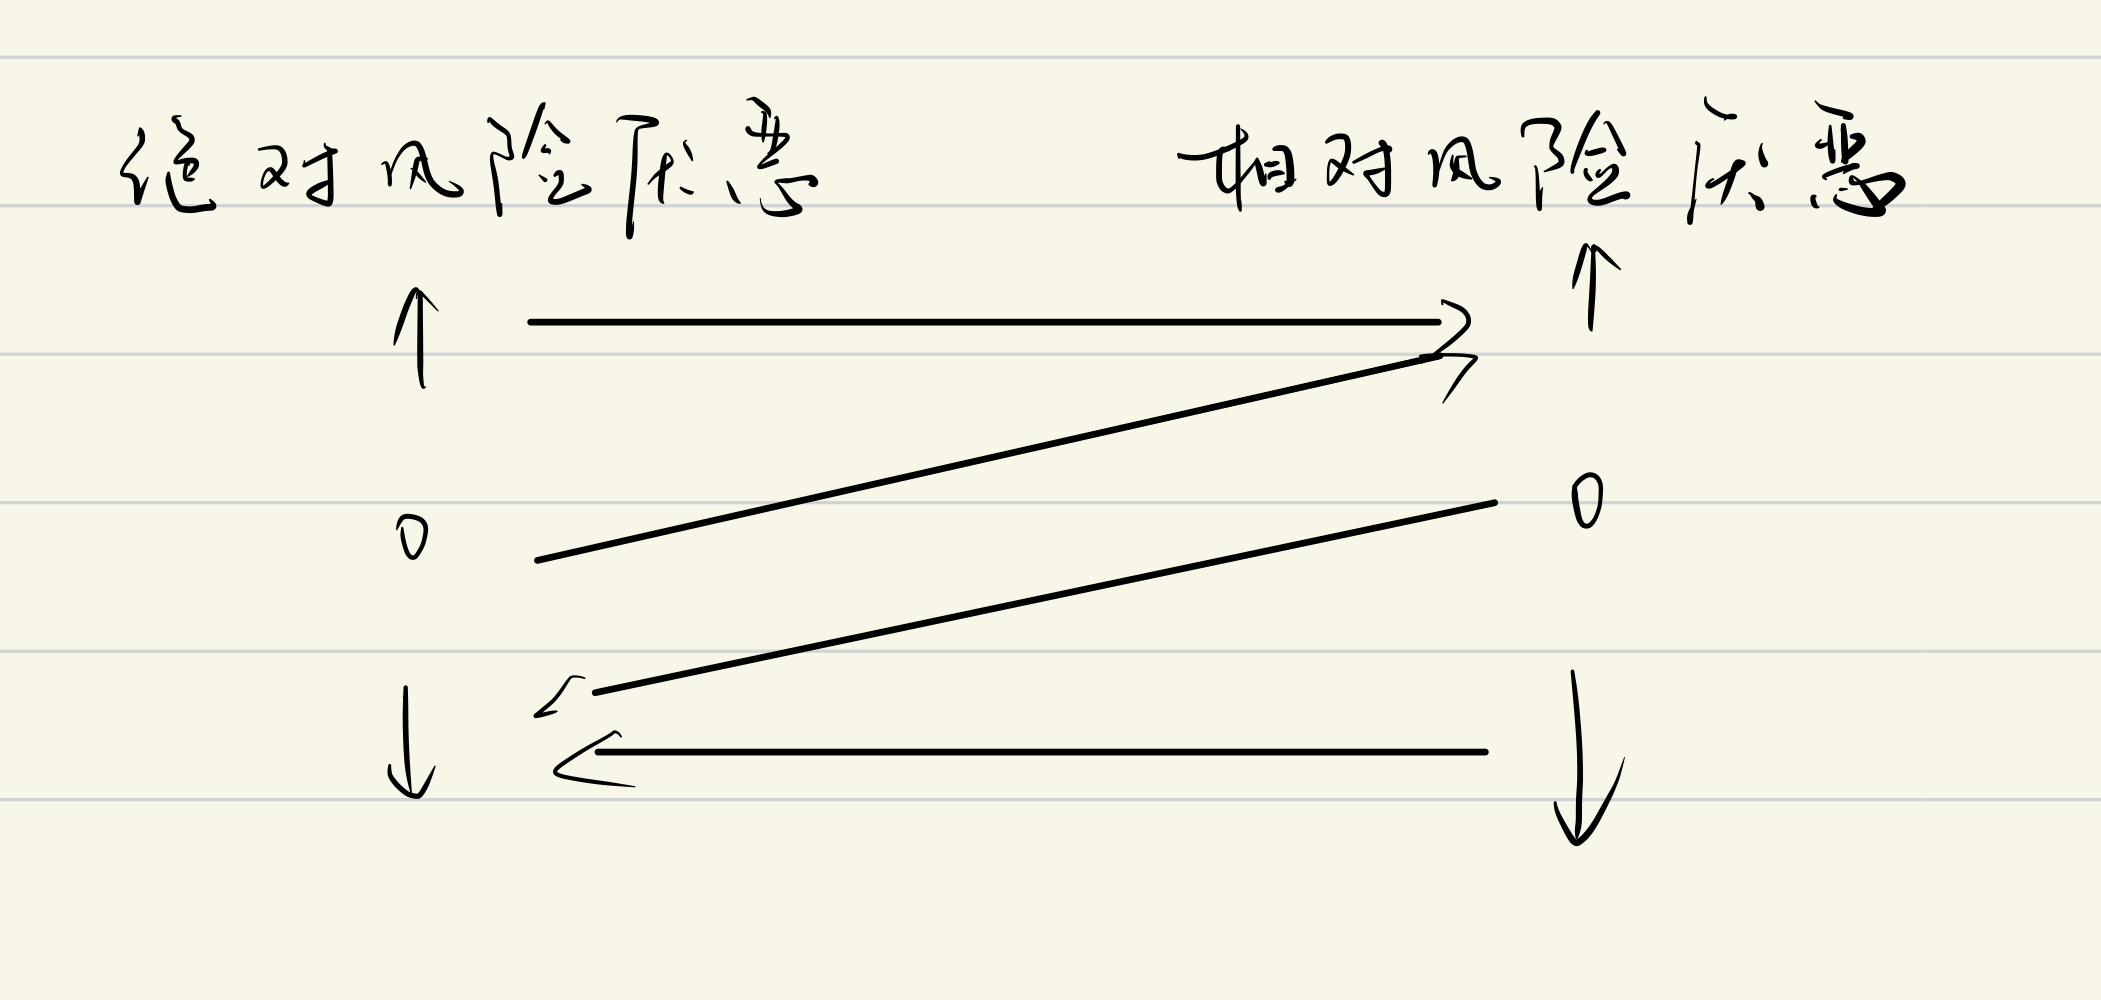 绝对风险厌恶 相对风险厌恶
↑ ↑
0 0
↓ ↓